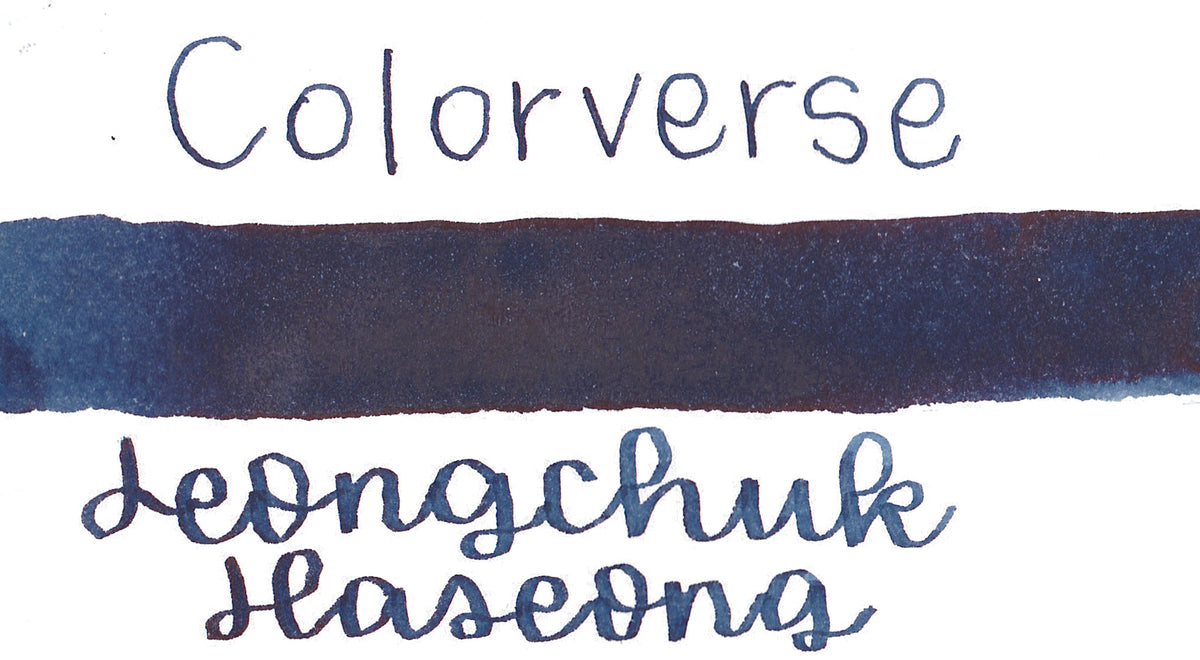 Colorverse
Jeongchuk
Haseong